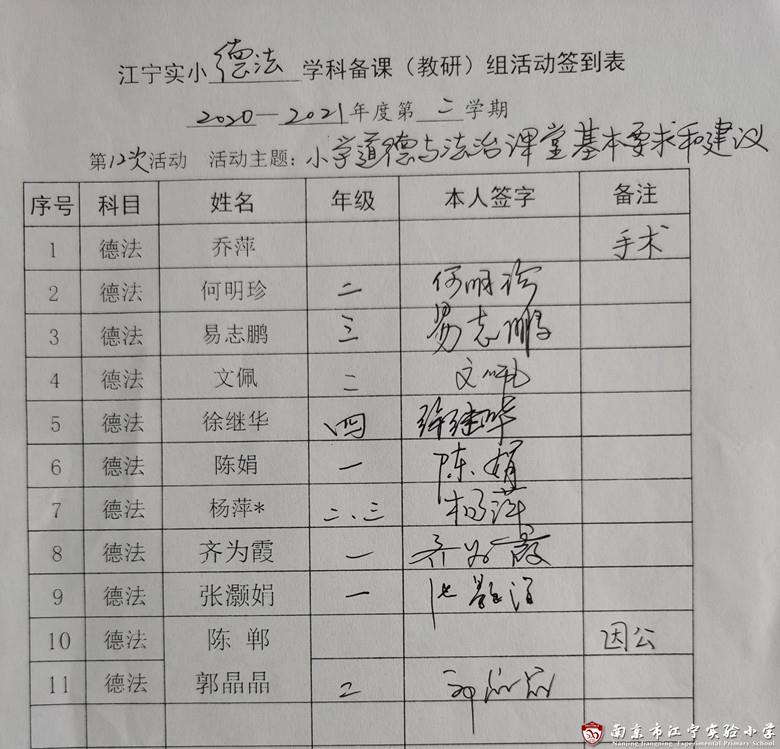 江宁实小 德法 学科备课（教研）组活动签到表
2020—2021年度第 二 学期
第12次活动 活动主题：小学道德与法治课堂基本要求和建议
序号 科目 姓名 年级 本人签字 备注
1 德法 乔萍 手术
2 德法 何明珍 二 何明珍
3 德法 易志鹏 三 易志鹏
4 德法 文佩 二 文佩
5 德法 徐继华 四 徐继华
6 德法 陈娟 一 陈娟
7 德法 杨萍* 二、三 杨萍
8 德法 齐为霞 一 齐为霞
9 德法 张灏娟 一 张灏娟
10 德法 陈 郸 因公
11 德法 郭晶晶 2 郭晶晶
南京市江宁实验小学
Nanjing Jiangning Experimental Primary School